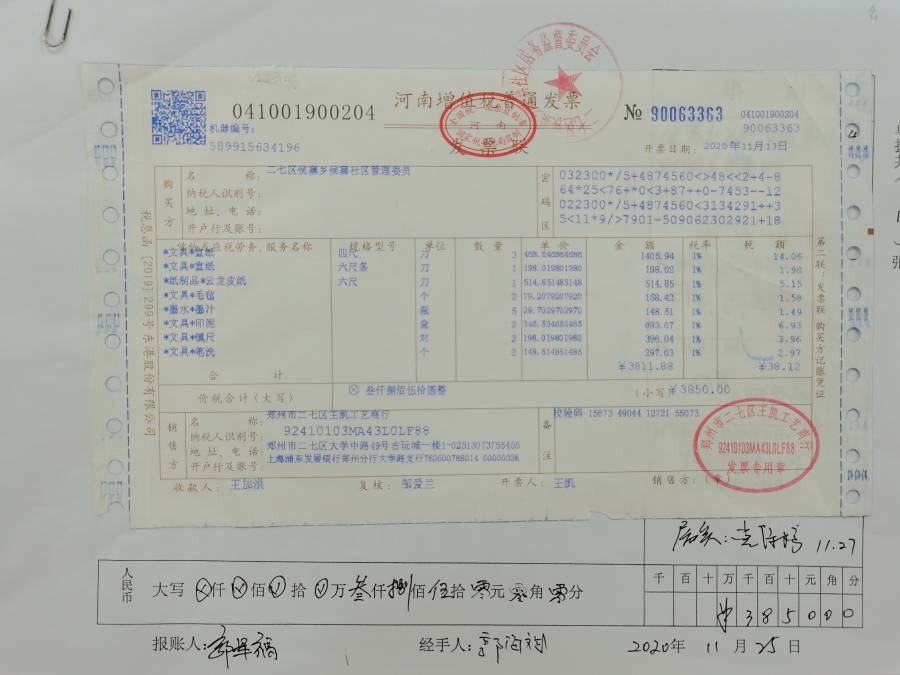 社区居务监督委员会
041001900204
河南增值税普通发票
№ 90063363
041001900204
90063363
机器编号:
589915634196
河南
发票联
开票日期: 2020年11月13日
税总函[2019]299号 东港股份有限公司
购买方
名称: 二七区侯寨乡侯寨社区管理委员
纳税人识别号:
地址、电话:
开户行及账号:
密码区
032300*/5+4874560<>48<<2+4-8
64*25<76+*0<3+87++0-7453--12
022300*/5+4874560<3134291++3
5<11*9/>7901-509062302921+18
货物或应税劳务、服务名称 规格型号 单位 数量 单价 金额 税率 税额
*文具*宣纸 四尺 刀 3 468.646864686 1405.94 1% 14.06
*文具*宣纸 六尺条 刀 1 198.019801980 198.02 1% 1.98
*纸制品*云龙皮纸 六尺 刀 1 514.851485148 514.85 1% 5.15
*文具*毛毡 个 2 79.2079207920 158.42 1% 1.58
*墨水*墨汁 瓶 5 29.7029702970 148.51 1% 1.49
*文具*印泥 盒 2 346.534653465 693.07 1% 6.93
*文具*镇尺 对 2 198.019801980 396.04 1% 3.96
*文具*笔洗 个 2 148.514851485 297.03 1% 2.97
合计 ¥3811.88 ¥38.12
价税合计(大写) ⊗ 叁仟捌佰伍拾圆整 (小写)¥3850.00
第二联:发票联 购买方记账凭证
销售方
名称: 郑州市二七区王凯工艺商行
纳税人识别号: 92410103MA43L0LF88
地址、电话: 郑州市二七区大学中路49号古玩城一楼1-025
开户行及账号: 上海浦东发展银行郑州分行大学路支行
备注
校验码 15873 49044 12721 55073
郑州市二七区王凯工艺商行
92410103MA43L0LF88
发票专用章
收款人: 王加洪 复核: 邹爱兰 开票人: 王凯 销售方:(章)
11.27
人民币
大写 ⊗仟 ⊗佰 ⊗拾 ⊗万 叁仟捌佰伍拾零元零角零分
千 百 十 万 千 百 十 元 角 分
¥ 3 8 5 0 0 0
报账人:
经手人:
2020年 11月25日